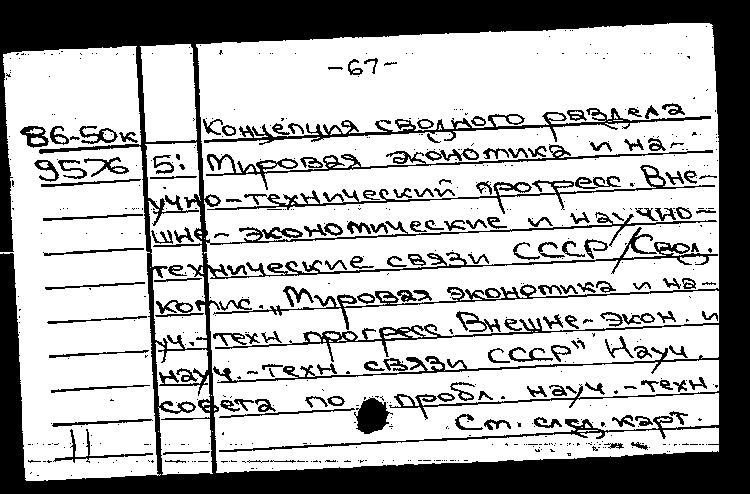 -67-
86-50к Концепция сводного раздела
9576 5: Мировая экономика и на-
учно-технический прогресс. Вне-
шне-экономические и научно-
технические связи СССР/Свод.
комис. „Мировая экономика и на-
уч.-техн. прогресс. Внешне-экон. и
науч.-техн. связи СССР" Науч.
совета по пробл. науч.-техн.
См. след. карт.
11